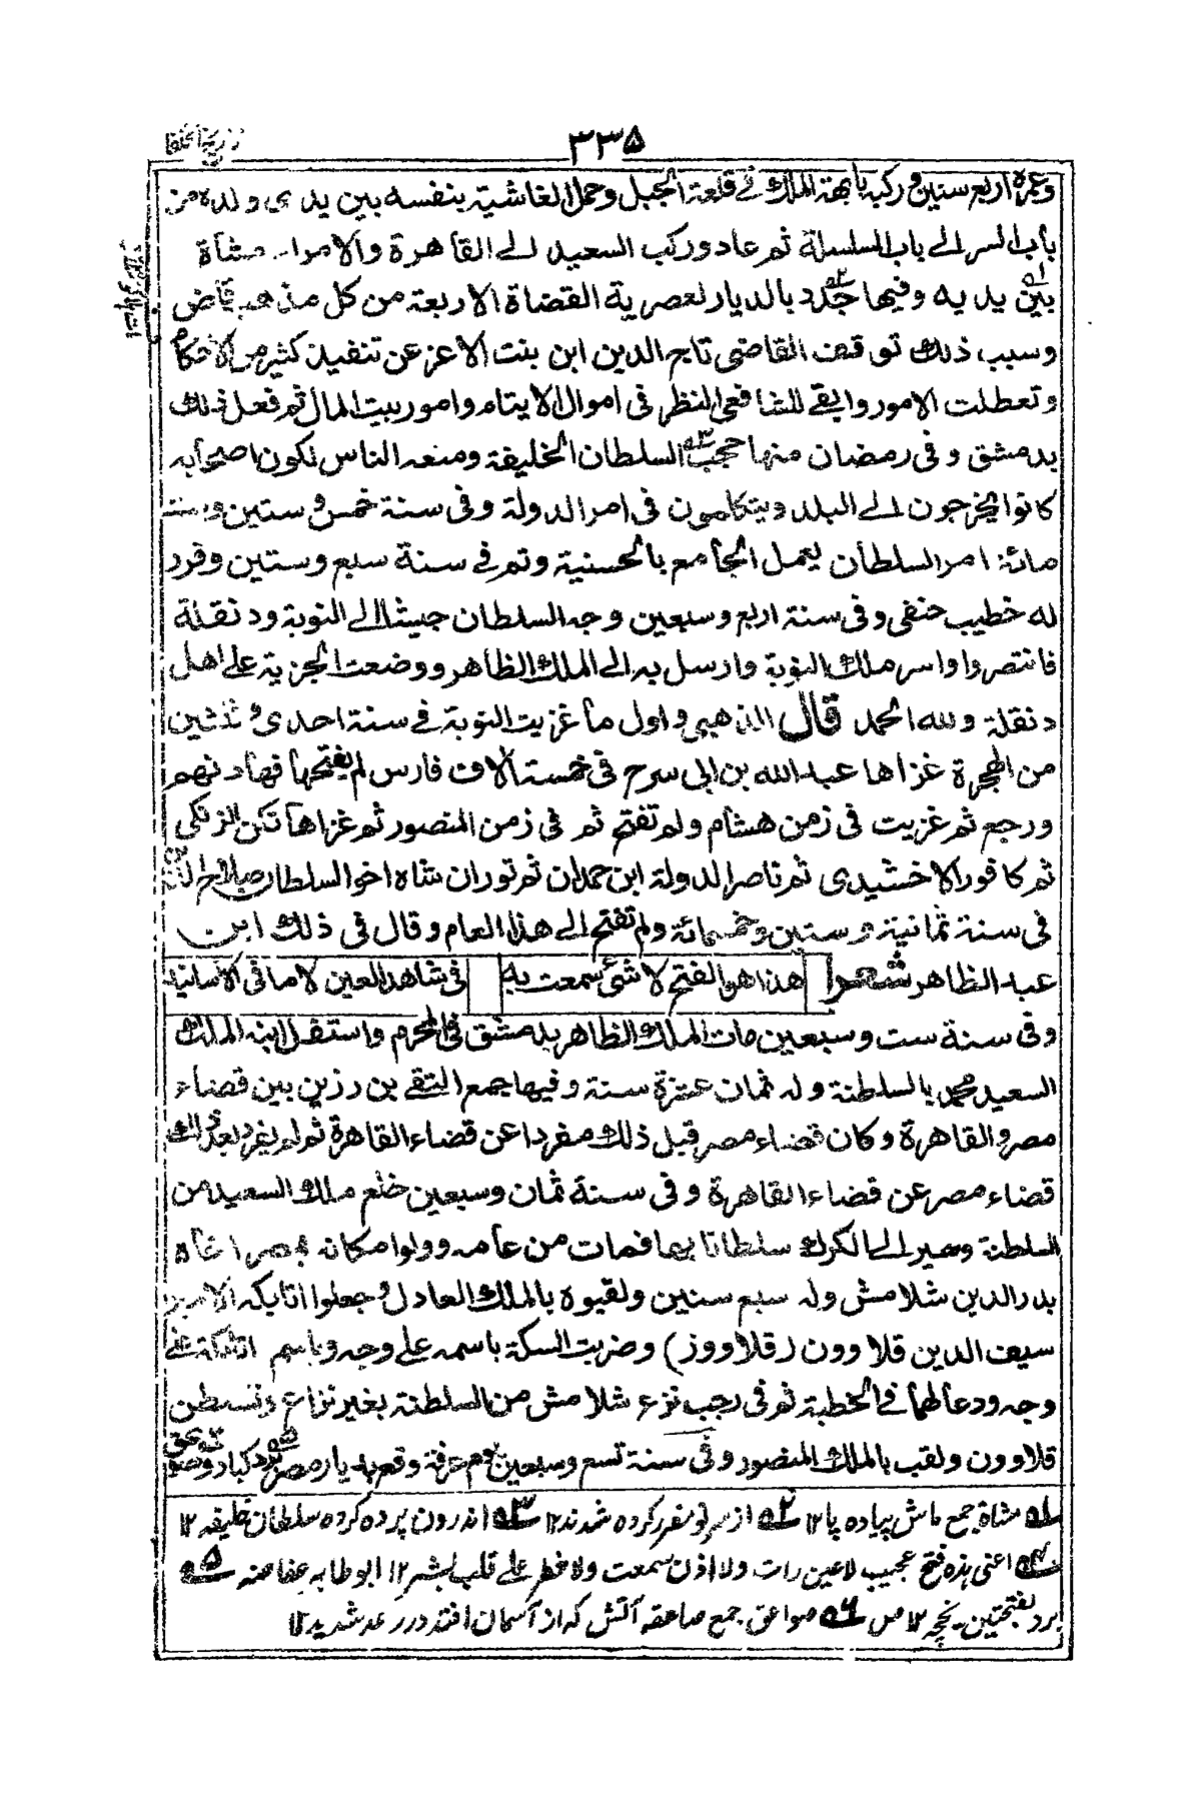 ۳۳۵
وعمره اربع سنين وركبه بابهة الملك فے قلعة الجبل وحمل الغاشية بنفسه بين يدى ولده من
باب السر الے باب السلسلة ثم عاد وركب السعيد الے القاهرة والامراء مشاة
بين يديه وفيها جدد بالديار لعصرية القضاة الاربعة من كل مذهب قاض
وسبب ذلك توقف القاضى تاج الدين ابن بنت الاعز عن تنفيذ كثير من الاحكام
وتعطلت الامور وابقے للشافعى النظر فى اموال الايتام وامور بيت المال ثم فعل ذلك
بدمشق وفى رمضان منها حجب السلطان الخليفة ومنعه الناس لكون اصحابه
كانوا يخرجون الے البلد ويتكلمون فى امر الدولة وفى سنة خمس و ستين وست
مائة امر السلطان يعمل الجامع بالحسنية وتم فے سنة سبع وستين وقرر
له خطيب حنفى وفى سنة اربع وسبعين وجه السلطان جيشا الے النوبة ودنقلة
فانتصروا واسر ملك النوبة وارسل به الے الملك الظاهر ووضعت الجزية علے اهل
دنقلة ولله الحمد قال الذهبى واول ما غزيت النوبة فے سنة احدى و ثلثين
من الهجرة غزاها عبد الله بن ابى سرح فى خمسة الاف فارس لم يفتحها فهادنهم
ورجع ثم غزيت فى زمن هشام ولم تفتح ثم فى زمن المنصور ثم غزاها تكن الزنكى
ثم كافور الاخشيدى ثم ناصر الدولة ابن حمدان ثم توران شاه اخو السلطان صلاح الدين
فى سنة ثمانية وستين وخمسمائة ولم تفتح الے هذا العام وقال فى ذلك ابن
عبد الظاهر شعرا هذا هو الفتح لا شئ سمعت به فى شاهد العين لا ما فى الاسانيد
وفى سنة ست وسبعين مات الملك الظاهر بدمشق فى المحرم واستقل ابنه الملك
السعيد محمد بالسلطنة وله ثمان عشرة سنة وفيها جمع التقے بن رزين بين قضاء
مصر والقاهرة وكان قضاء مصر قبل ذلك مفردا عن قضاء القاهرة ثم لم يفرد بعد ذلك
قضاء مصر عن قضاء القاهرة وفى سنة ثمان وسبعين خلع ملك السعيد من
السلطنة وسير الے الكرك سلطانا بها فمات من عامه وولوا مكانه بمصر اخاه
بدر الدين شلامش وله سبع سنين ولقبوه بالملك العادل و جعلوا اتابكه الامير
سيف الدين قلاوون (قلاووز) وضربت السكة باسمه علے وجه وباسم اتابكه علے
وجه ودعا لهما فے الخطبة ثم فى رجب نزع شلامش من السلطنة بغير نزاع وتسلطن
قلاوون ولقب بالملك المنصور وفى سنة تسع وسبعين يوم عرفة وقع بديار مصر برد كبار وصواعق
ـ۱ مشاة جمع ماش پياده پا ۱۲ ـ۲ از سر نو مقرر كرده شدند ۱۲ ـ۳ اندرون پرده كرده سلطان خليفه ۱۲
ـ۴ اعنى هذه فتح عجيب لا عين رات ولا اذن سمعت ولا خطر علے قلب بشر ۱۲ ابو طاب عفا عنه ـ۵
برد بفتحتين يخچه ۱۲ ص ـ۶ صواعق جمع صاعقه آتش كه از آسمان افتد در رعد شديد ۱۲